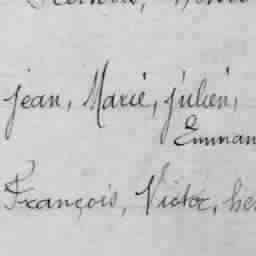 jean, Marie, julien,
Emman
François, Victor, he